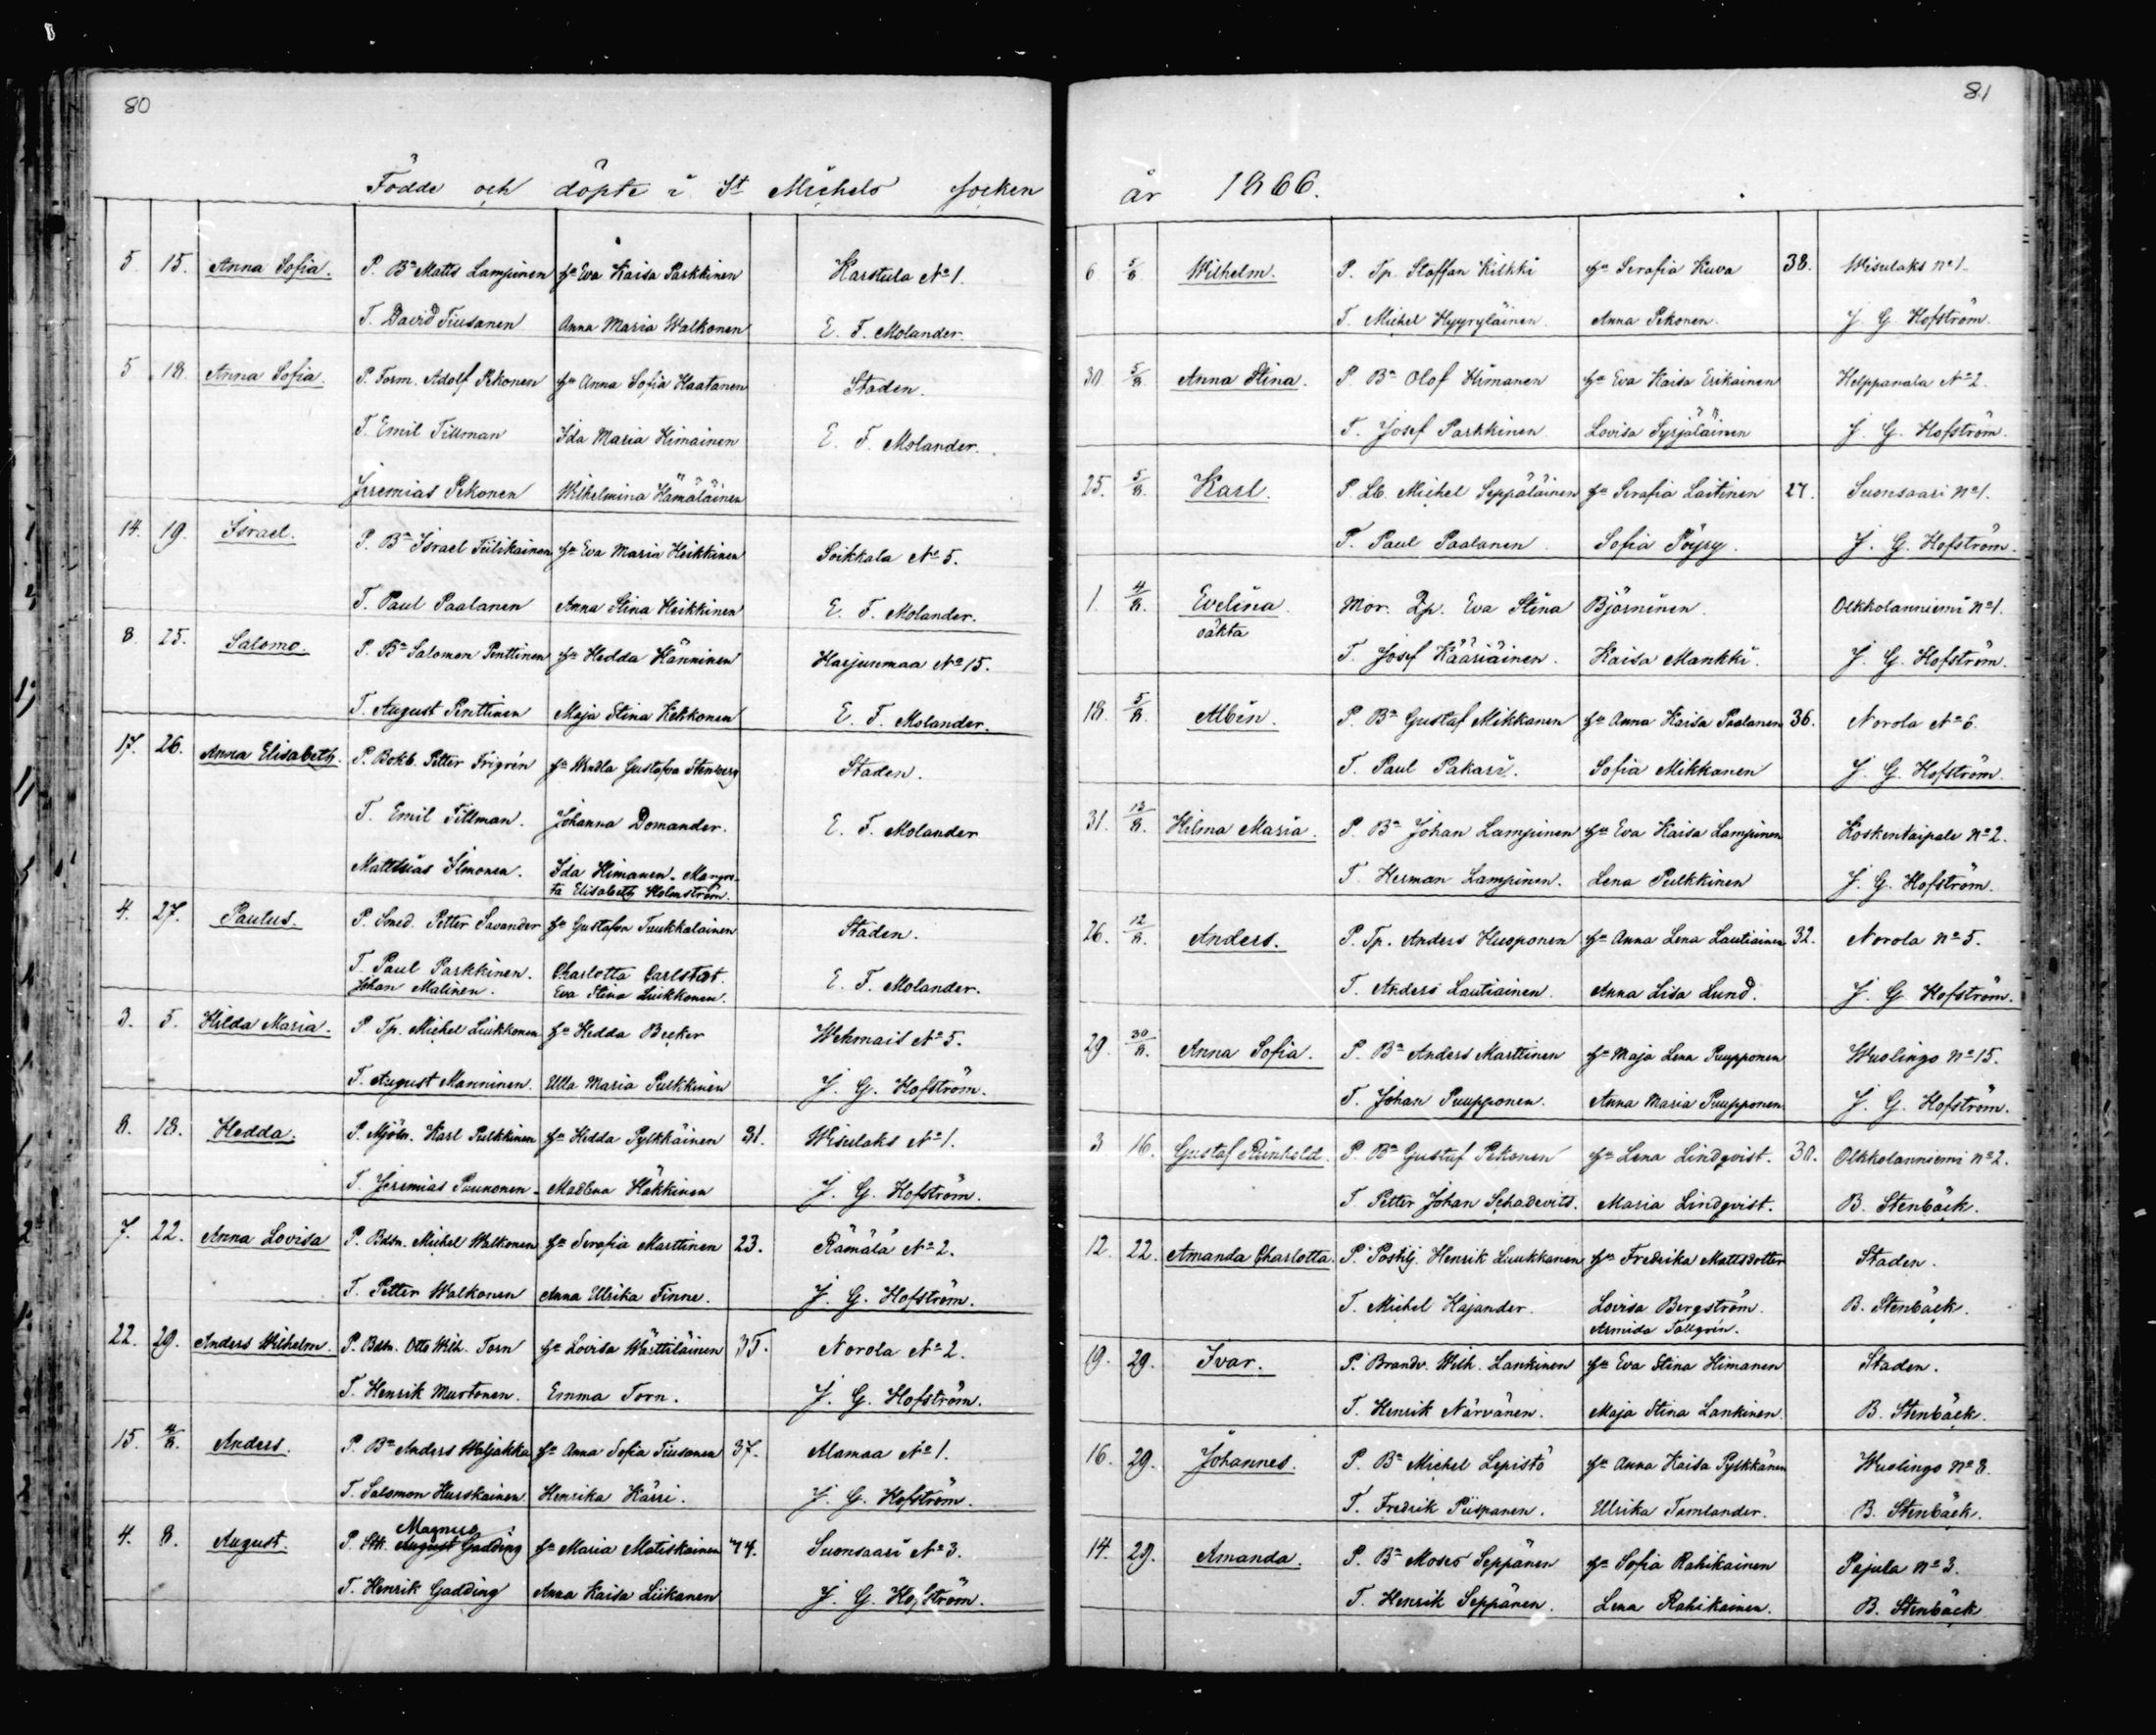 80
Födde och döpte i St Michels socken
5. 15. Anna Sofia. P. Bn Matts Lampinen hu Eva Kaisa Parkkinen Karstula No 1.
T. David Tiusanen Anna Maria Walkonen E. F. Molander.
5 18 Anna Sofia. P. Form. Adolf Pekonen hu Anna Sofia Haatanen Staden.
T. Emil Tillman Ida Maria Himainen E. F. Molander.
Jeremias Pekonen Wilhelmina Hämäläinen
14. 19. Israel. P. Bn Israel Tiilikainen hu Eva Maria Heikkinen Soikkala No 5.
T. Paul Paalanen Anna Stina Heikkinen E. F. Molander.
8. 25. Salomo. P. Bn Salomon Penttinen hu Hedda Hänninen Harjunmaa No 15.
T. August Penttinen Maja Stina Kekkonen E. F. Molander.
17. 26. Anna Elisabeth. P. Bokb. Petter Frigrén hu Wendla Gustafva Stenberg Staden.
T. Emil Tillman. Johanna Domander. E. F. Molander
Matthias Ilmonen. Ida Himanen. Margre-
ta Elisabeth Holmström.
4. 27. Paulus. P. Smed. Petter Savander hu Gustafva Tuukkalainen Staden.
T. Paul Parkkinen. Charlotta Carlstat.
Johan Malinen. Eva Stina Liukkonen. E. F. Molander.
3. 5. Hilda Maria. P. Tp. Michel Liukkonen hu Hedda Becker Wehmais No 5.
T. August Manninen. Ulla Maria Pulkkinen J. G. Hofström.
8. 18. Hedda. P. Mjöln. Karl Pulkkinen hu Hedda Pylkkäinen 31. Wisulaks No 1.
T. Jeremias Paunonen. Madlena Häkkinen J. G. Hofström.
7. 22. Anna Lovisa P. Bdsn. Michel Walkonen hu Serafia Marttinen 23. Rämälä No 2.
T. Petter Walkonen Anna Ulrika Finne. J. G. Hofström.
22. 29. Anders Wilhelm. P. Bdsn. Otto Wilh. Torn hu Lovisa Wärttiläinen 35. Norola No 2.
T. Henrik Murtonen. Emma Torn. J. G. Hofström.
15. Anders. P. Bn Anders Waljakka hu Anna Sofia Tiusanen 37. Alamaa No 1.
T. Salomon Hurskainen Henrika Kärri. J. G. Hofström.
Magnus
4. 8. August. P. Stk. August Gadding hu Maria Matiskainen 44. Suonsaari No 3.
T. Henrik Gadding Anna Kaisa Liikanen J. G. Hofström.
81
år 1866.
6 5/8. Wilhelm. P. Tp. Staffan Kilkki hu Serafia Kuva 38. Wisulaks no 1.
T. Michel Hyyryläinen Anna Pekonen. J. G. Hofström.
30 5/8. Anna Stina. P. Bn Olof Himanen hu Eva Kaisa Erikainen Helppanala No 2.
T. Josef Parkkinen Lovisa Syrjäläinen J. G. Hofström.
25. 5/8. Karl. P. Lb. Michel Seppäläinen hu Serafia Laitinen 27. Suonsaari no 1.
T. Paul Paalanen Sofia Pöyry. J. G. Hofström.
1. 4/8. Evelina. Mor. Eva Stina Björninen. Olkkolanniemi no 1.
oäkta
T. Josef Kääriäinen. Kaisa Mankki. J. G. Hofström.
18. 5/8. Albin. P. Bn Gustaf Mikkanen hu Anna Kaisa Paalanen 36. Norola No 6.
T. Paul Pakari. Sofia Mikkanen J. G. Hofström.
31. 12/8. Hilma Maria. P. Bn Johan Lampinen hu Eva Kaisa Lampinen Koskentaipale no 2.
T. Herman Lampinen. Lena Pulkkinen J. G. Hofström.
26. 12/8. Anders. P. Tp. Anders Huoponen hu Anna Lena Lautiainen 32. Norola no 5.
T. Anders Lautiainen. Anna Lisa Lund. J. G. Hofström.
29. 30/8. Anna Sofia. P. Bn Anders Marttinen hu Maja Lena Puupponen Wuolingo no 15.
T. Johan Puupponen. Anna Maria Puupponen J. G. Hofström.
3 16. Gustaf Reinhold. P. Bn Gustaf Pekonen hu Lena Lindqvist. 30. Olkkolanniemi no 2.
T. Petter Johan Schadevits. Maria Lindqvist. B. Stenbäck.
12. 22. Amanda Charlotta. P. Postilj. Henrik Luukkanen hu Fredrika Mattsdotter Staden.
T. Michel Kajander. Lovisa Bergström. B. Stenbäck.
Armida Tallgrén.
19. 29. Ivar. P. Brandv. Wilh. Lankinen hu Eva Stina Himanen Staden.
T. Henrik Närvänen. Maja Stina Lankinen. B. Stenbäck.
16. 29. Johannes. P. Bn Michel Lepistö hu Anna Kaisa Pylkkänen Wuolingo no 8.
T. Fredrik Piispanen. Ulrika Tamlander. B. Stenbäck.
14. 29. Amanda. P. Bn Moses Seppänen hu Sofia Rahikainen Pajula no 3.
T. Henrik Seppänen. Lena Rahikainen. B. Stenbäck